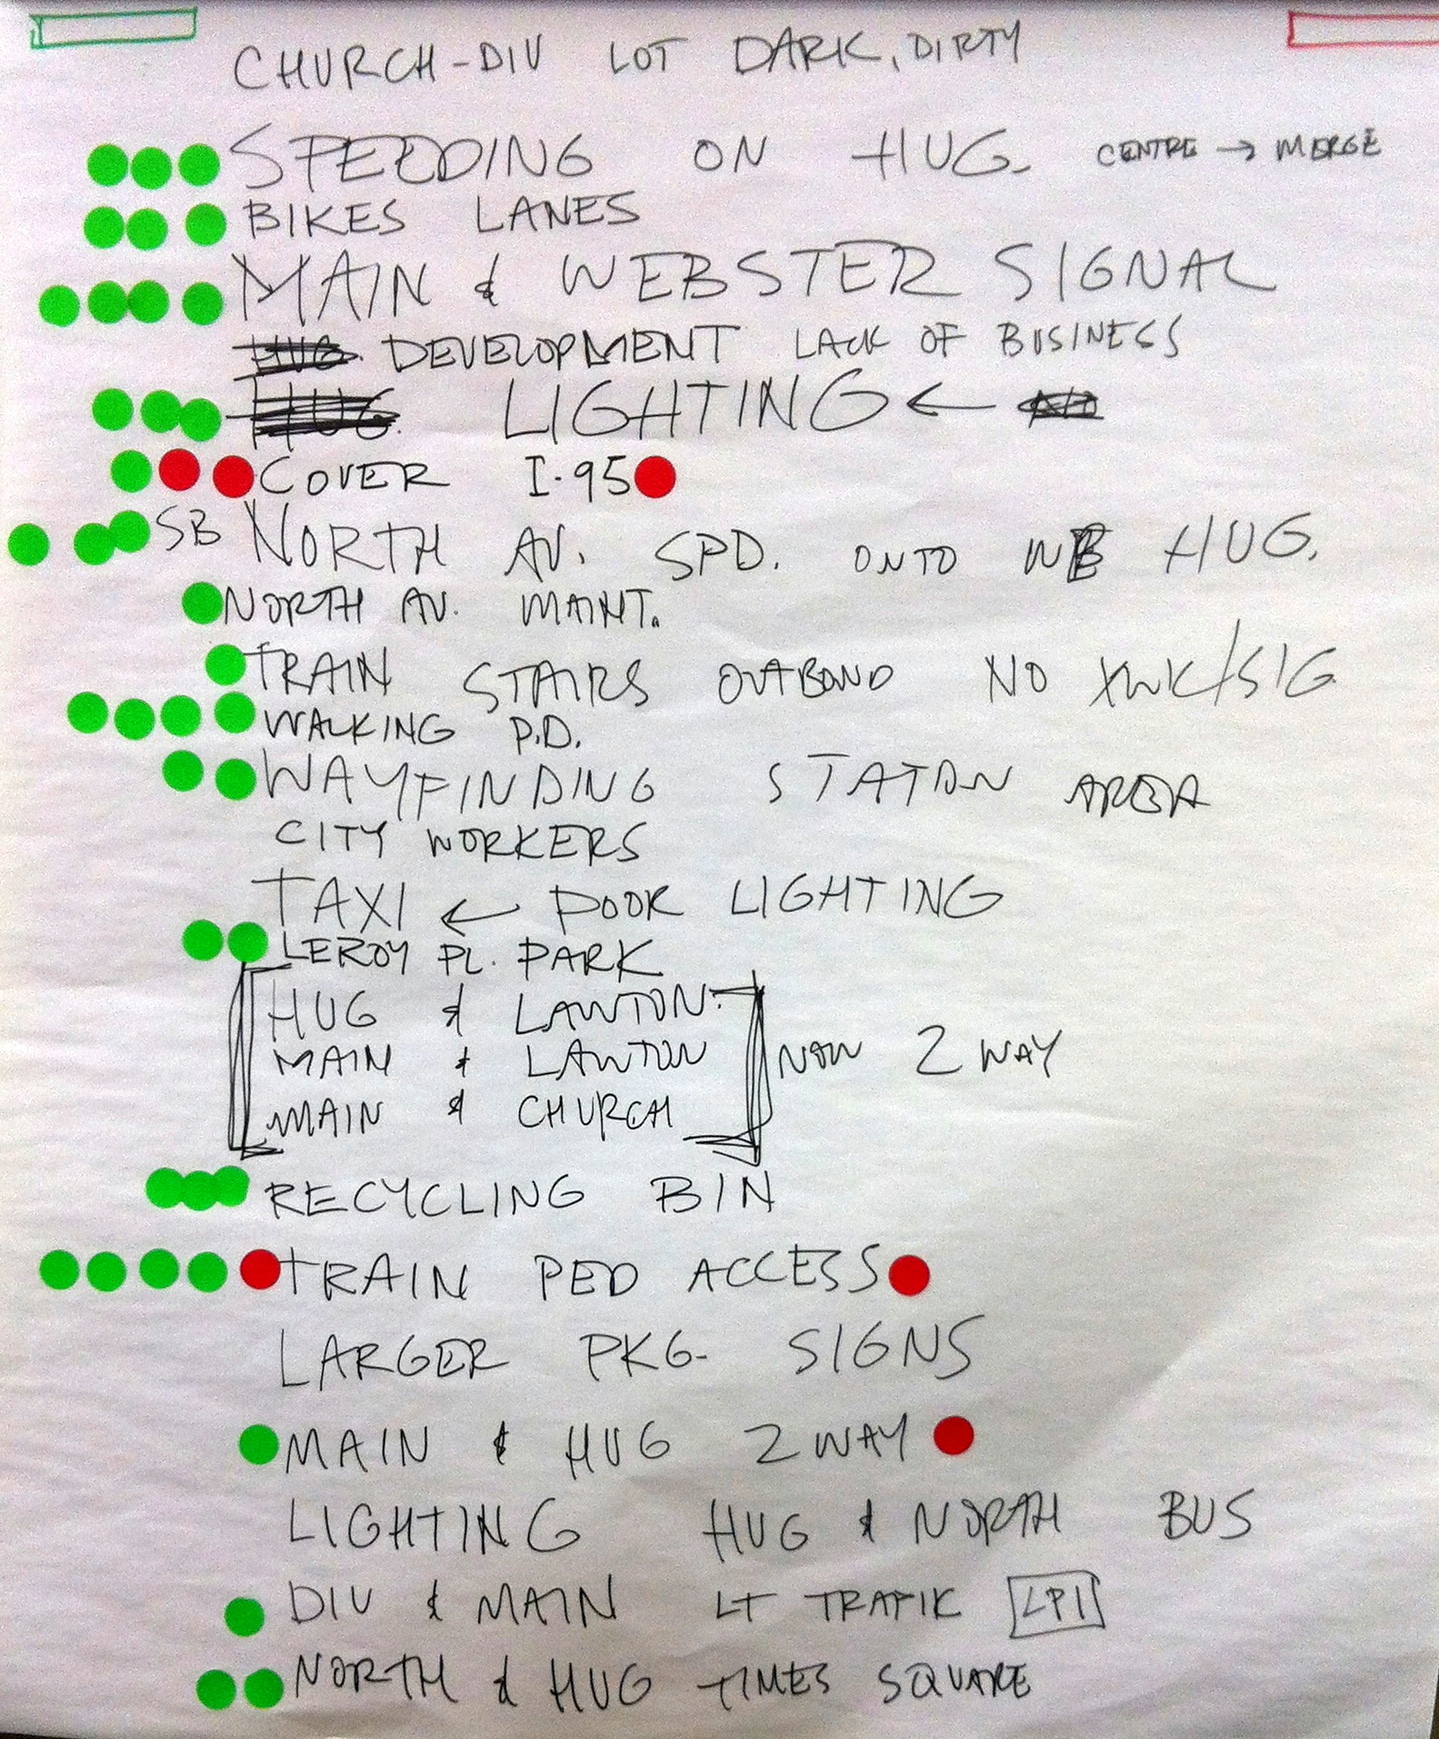 CHURCH-DIV LOT DARK, DIRTY
SPEEDING ON HUG. CENTRE → MERGE
BIKES LANES
MAIN & WEBSTER SIGNAL
HUG. DEVELOPMENT LACK OF BUSINESS
HUG. LIGHTING ←
COVER I-95
SB NORTH AV. SPD. ONTO WB HUG.
NORTH AV. MAINT.
TRAIN STAIRS OUTBOND NO XWK/SIG.
WALKING P.D.
WAYFINDING STATON AREA
CITY WORKERS
TAXI ← POOR LIGHTING
LEROY PL. PARK
HUG & LAWTON
MAIN & LAWTON NOW 2 WAY
MAIN & CHURCH
RECYCLING BIN
TRAIN PED ACCESS
LARGER PKG. SIGNS
MAIN & HUG 2 WAY
LIGHTING HUG & NORTH BUS
DIV & MAIN LT TRAFIK LPI
NORTH & HUG TIMES SQUARE